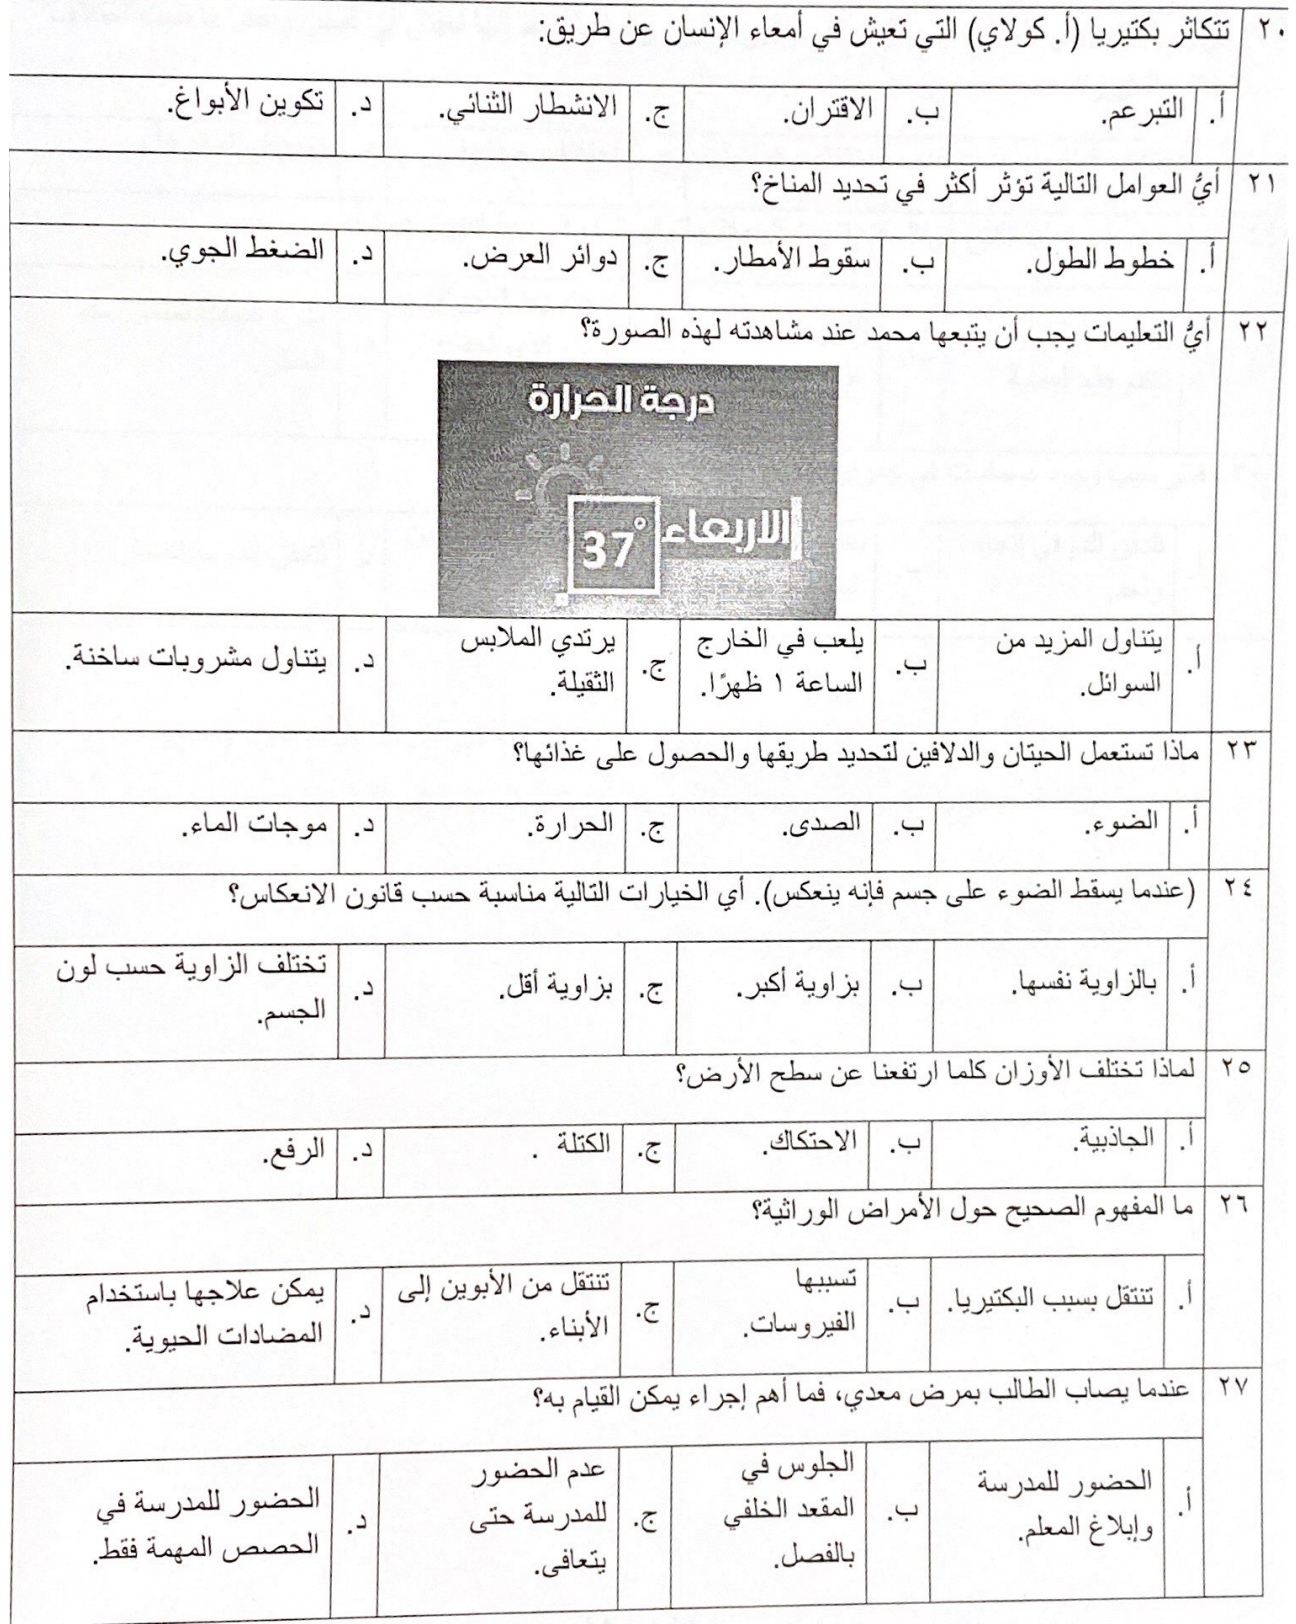 ٢٠ تتكاثر بكتيريا (أ. كولاي) التي تعيش في أمعاء الإنسان عن طريق:
أ. التبرعم. ب. الاقتران. ج. الانشطار الثنائي. د. تكوين الأبواغ.
٢١ أيُّ العوامل التالية تؤثر أكثر في تحديد المناخ؟
أ. خطوط الطول. ب. سقوط الأمطار. ج. دوائر العرض. د. الضغط الجوي.
٢٢ أيُّ التعليمات يجب أن يتبعها محمد عند مشاهدته لهذه الصورة؟
درجة الحرارة
الاربعاء 37°
أ. يتناول المزيد من السوائل. ب. يلعب في الخارج الساعة ١ ظهرًا. ج. يرتدي الملابس الثقيلة. د. يتناول مشروبات ساخنة.
٢٣ ماذا تستعمل الحيتان والدلافين لتحديد طريقها والحصول على غذائها؟
أ. الضوء. ب. الصدى. ج. الحرارة. د. موجات الماء.
٢٤ (عندما يسقط الضوء على جسم فإنه ينعكس). أي الخيارات التالية مناسبة حسب قانون الانعكاس؟
أ. بالزاوية نفسها. ب. بزاوية أكبر. ج. بزاوية أقل. د. تختلف الزاوية حسب لون الجسم.
٢٥ لماذا تختلف الأوزان كلما ارتفعنا عن سطح الأرض؟
أ. الجاذبية. ب. الاحتكاك. ج. الكتلة . د. الرفع.
٢٦ ما المفهوم الصحيح حول الأمراض الوراثية؟
أ. تنتقل بسبب البكتيريا. ب. تسببها الفيروسات. ج. تنتقل من الأبوين إلى الأبناء. د. يمكن علاجها باستخدام المضادات الحيوية.
٢٧ عندما يصاب الطالب بمرض معدي، فما أهم إجراء يمكن القيام به؟
أ. الحضور للمدرسة وإبلاغ المعلم. ب. الجلوس في المقعد الخلفي بالفصل. ج. عدم الحضور للمدرسة حتى يتعافى. د. الحضور للمدرسة في الحصص المهمة فقط.